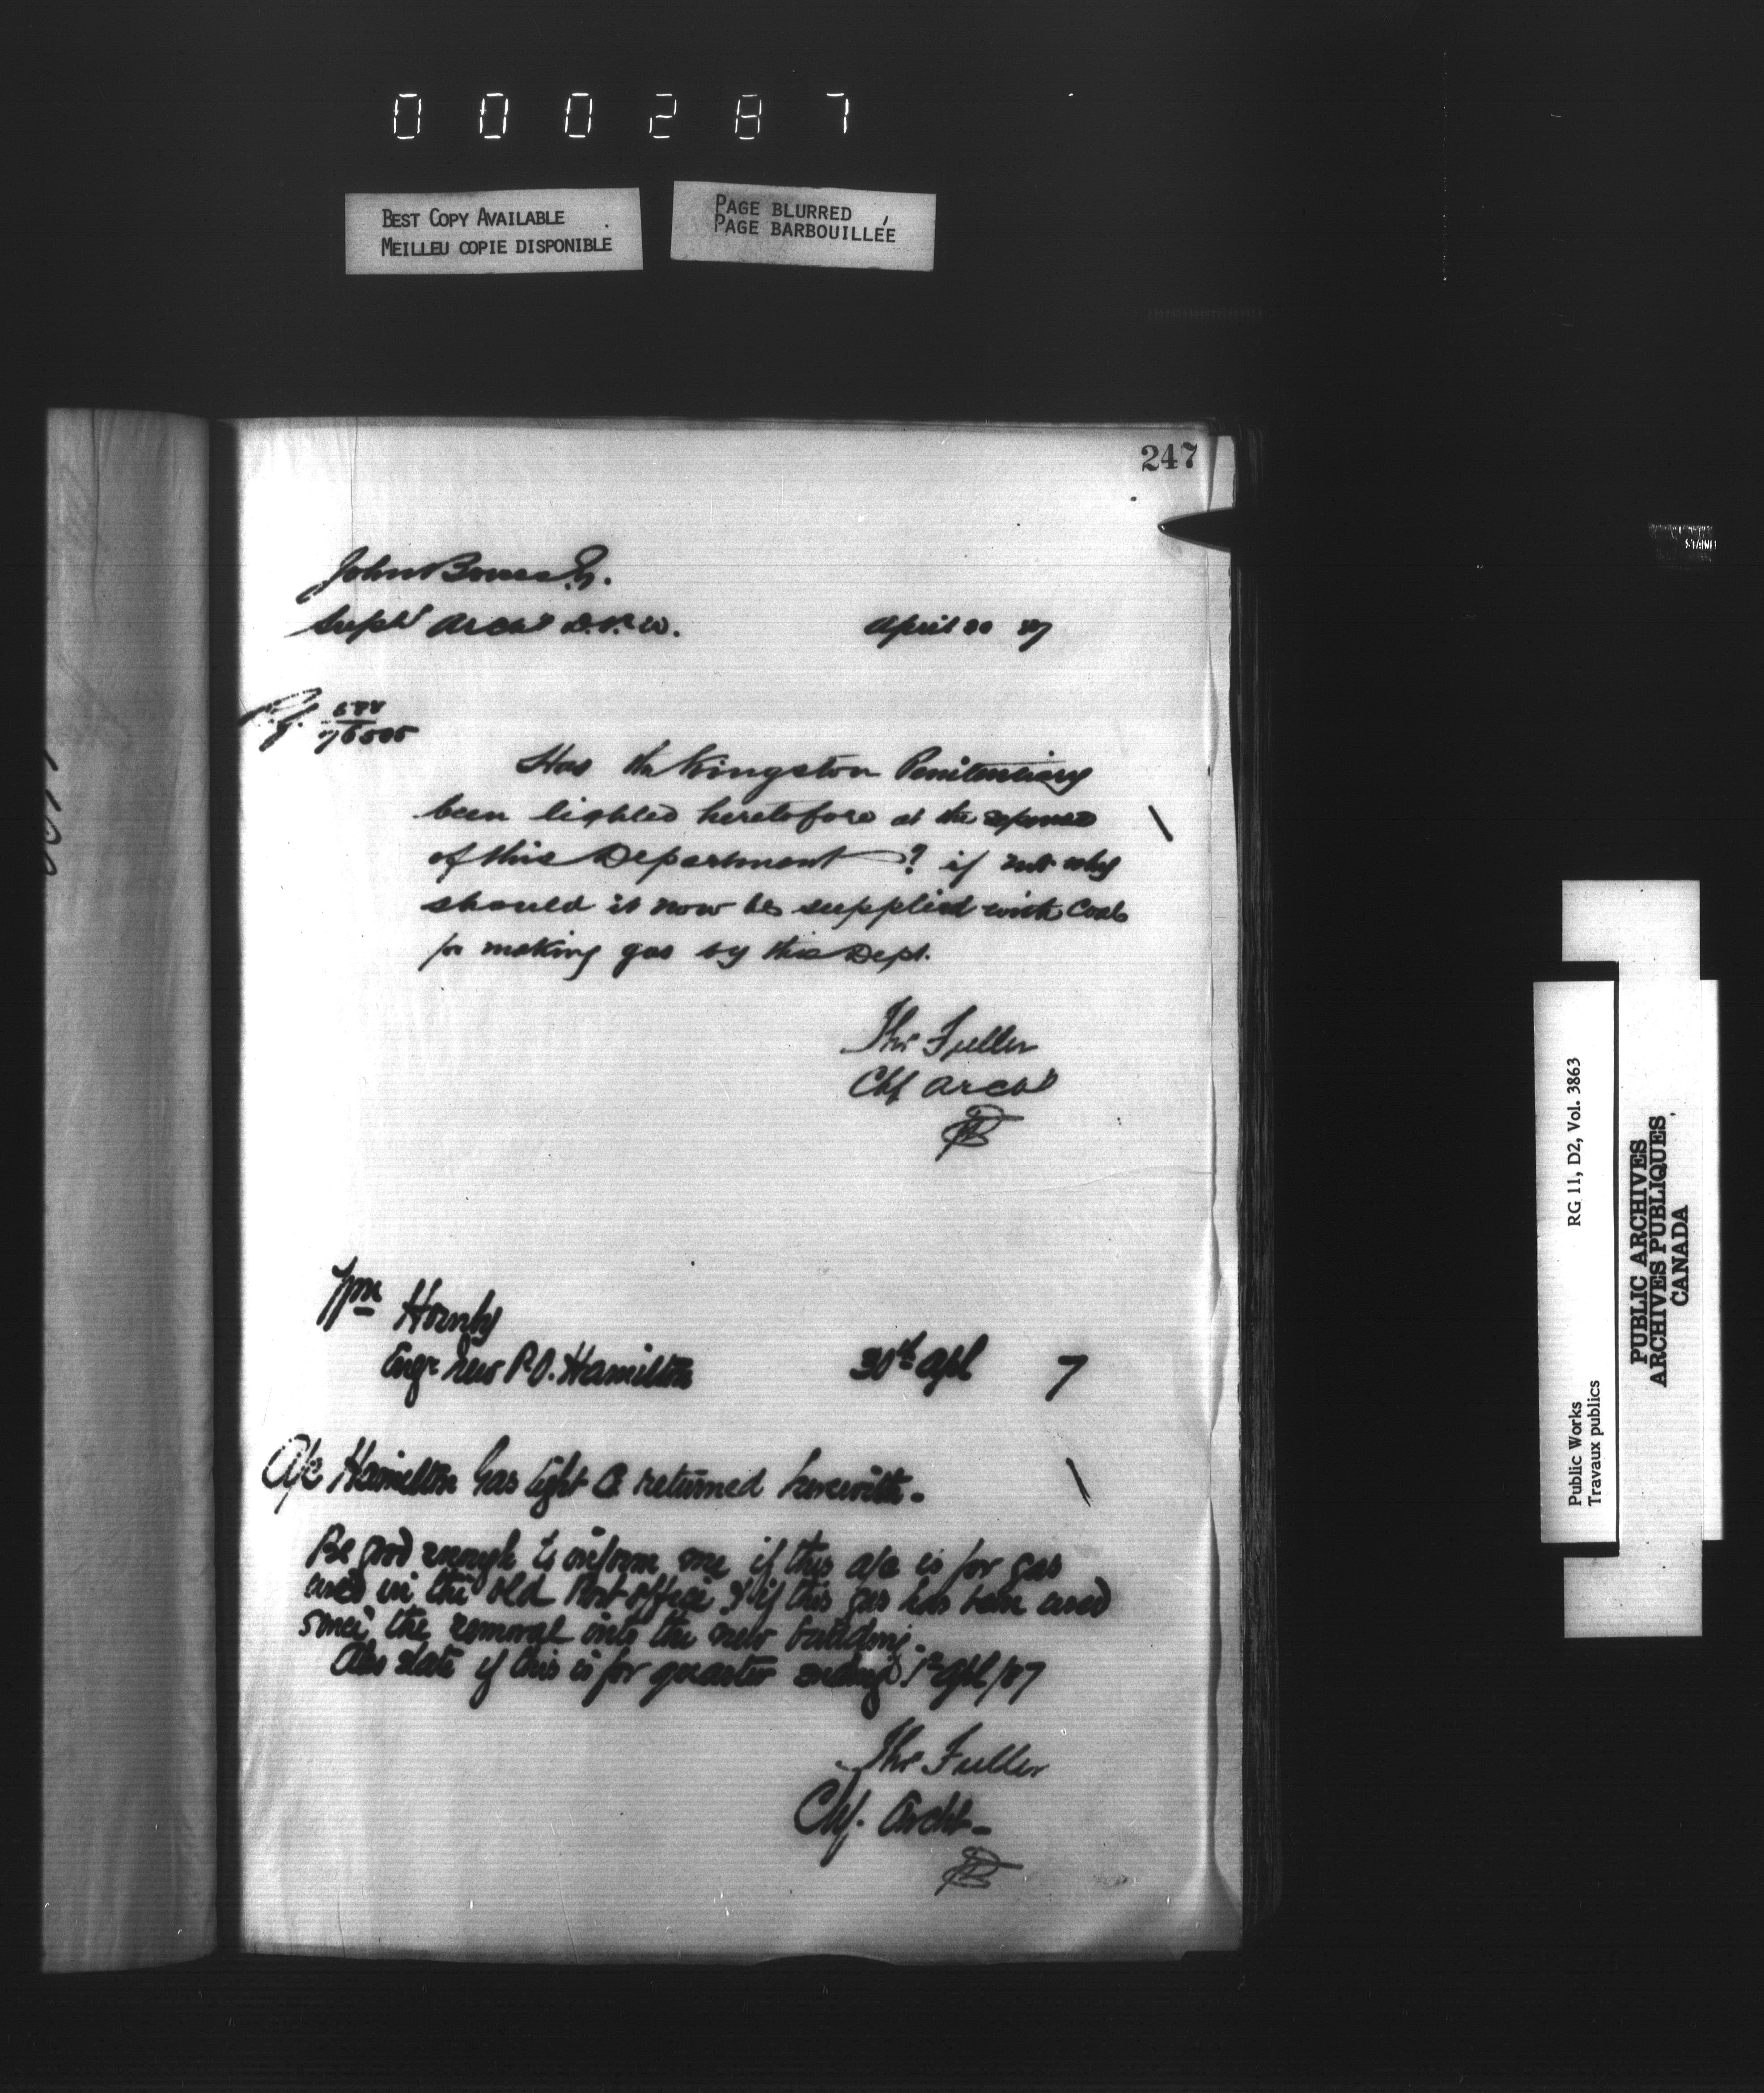 000287
BEST COPY AVAILABLE
MEILLEU COPIE DISPONIBLE
PAGE BLURRED
PAGE BARBOUILLÉE
247
John Bowes Esq.
Supt Archt D.P.W.
April 30 87
76505
Has the Kingston Penitentiary
been lighted heretofore at the expense
of this Department? if not why
should it now be supplied with Coal
for making gas by this Dept.
Thos Fuller
Chf Archt
Wm Hornby
Engr New P.O. Hamilton
30th Apl 7
A/c Hamilton Gas Light Co returned herewith.
Be good enough to inform me if this a/c is for gas
used in the old Post office & if this gas has been used
since the removal into the new building.
Also state if this is for quarter ending 1st Apl/87
Thos Fuller
Chf. Archt.
Public Works
Travaux publics
RG 11, D2, Vol. 3863
PUBLIC ARCHIVES
ARCHIVES PUBLIQUES
CANADA